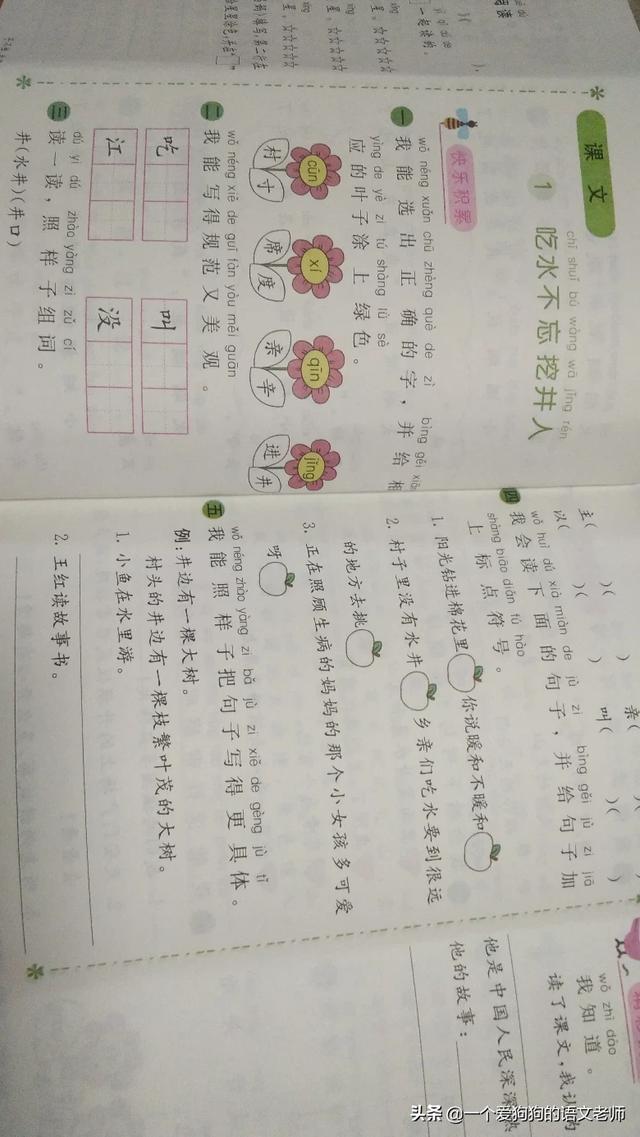 课文
chī shuǐ bú wàng wā jǐng rén
1 吃水不忘挖井人
快乐积累
wǒ néng xuǎn chū zhèng què de zì bìng gěi
一 我能选出正确的字，并给相
yìng de yè zi tú shàng lǜ sè
应的叶子涂上绿色。
cūn xí qīn jǐng
村 寸 席 度 亲 辛 进 井
wǒ néng xiě de guī fàn yòu měi guān
二 我能写得规范又美观。
吃 叫
江 没
dú yi dú zhào yàng zi zǔ cí
三 读一读，照样子组词。
井(水井)(井口)
亲(
主( )( ) 叫( )( )
以( )( )
wǒ huì dú xià miàn de jù zi bìng gěi jù zi jiā
四 我会读下面的句子，并给句子加
shàng biāo diǎn fú hào
上标点符号。
1. 阳光钻进棉花里 你说暖和不暖和
2. 村子里没有水井 乡亲们吃水要到很远
的地方去挑
3. 正在照顾生病的妈妈的那个小女孩多可爱
呀
wǒ néng zhào yàng zi bǎ jù zi xiě de gèng jù tǐ
五 我能照样子把句子写得更具体。
例：井边有一棵大树。
村头的井边有一棵枝繁叶茂的大树。
1. 小鱼在水里游。
2. 王红读故事书。
wǒ zhī dào
我知道。
读了课文，我认
他是中国人民深深
他的故事：
头条 @一个爱狗狗的语文老师